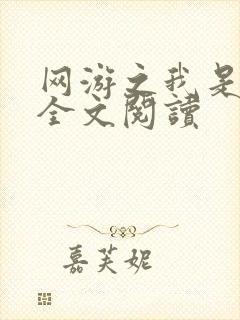 网游之我是
全文閱讀
嘉芙妮